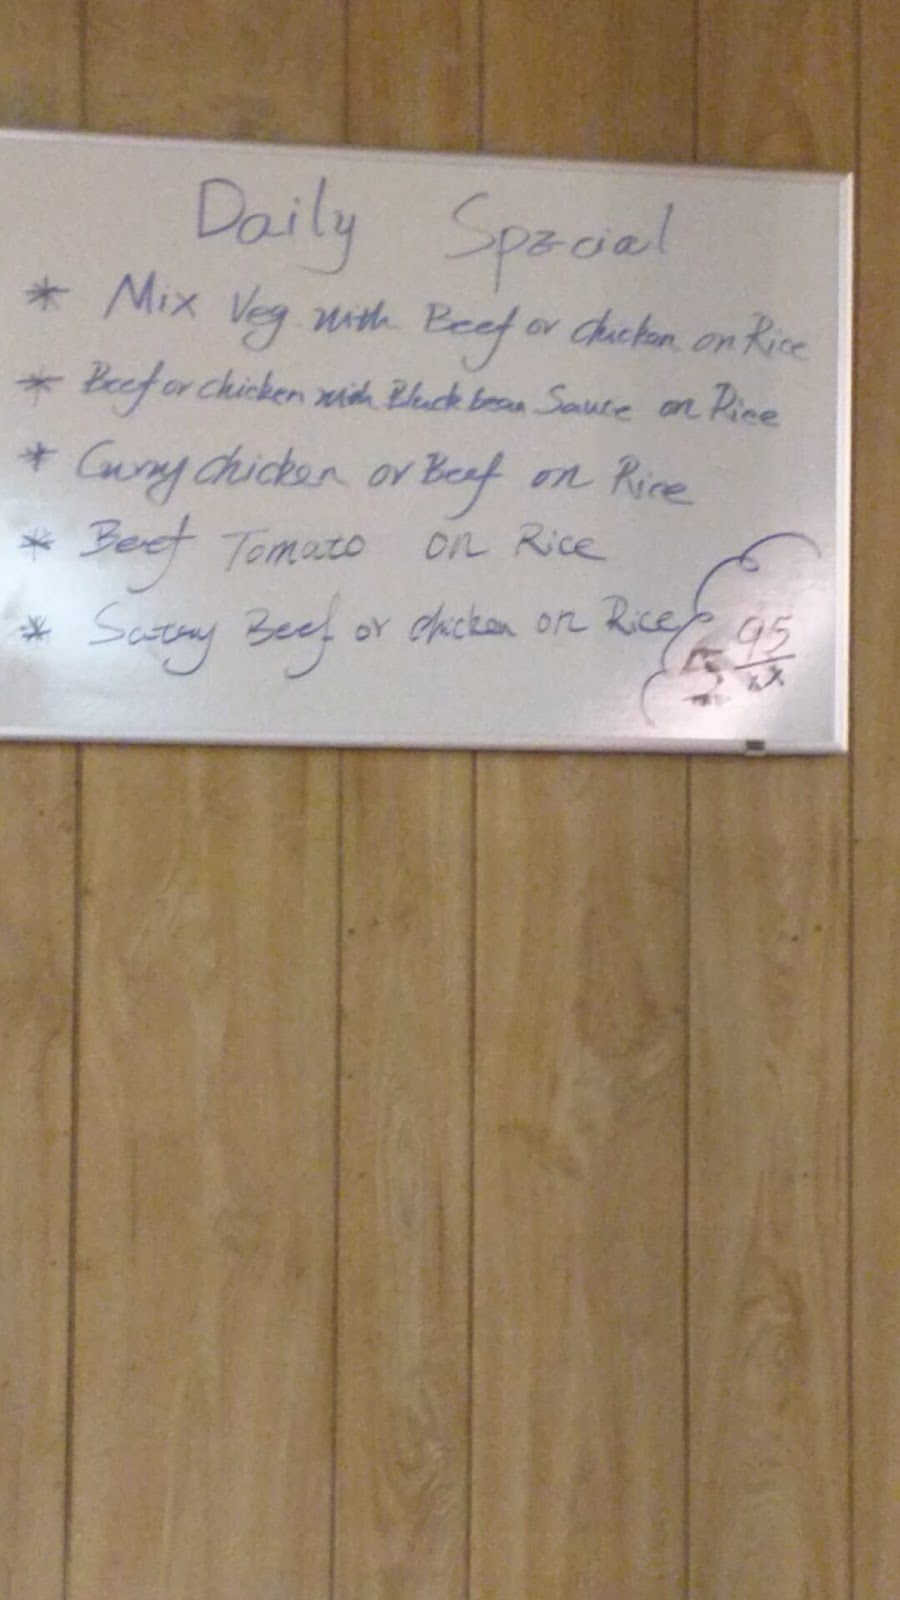 Daily Special
* Mix Veg with Beef or chicken on Rice
* Beef or chicken with Black bean Sauce on Rice
* Curry chicken or Beef on Rice
* Beef Tomato on Rice
* Satay Beef or chicken on Rice
5 95
xx